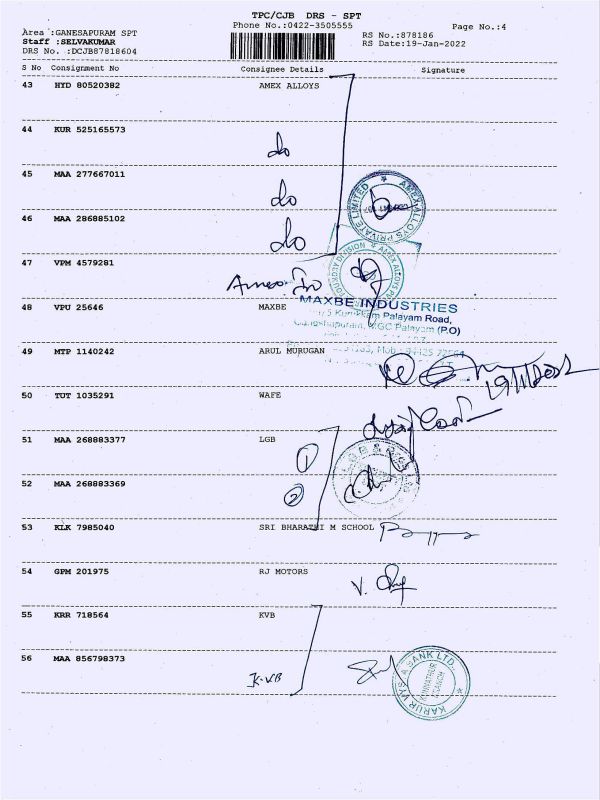 TPC/CJB DRS - SPT
Phone No.:0422-3505555 Page No.:4
Area :GANESAPURAM SPT RS No.:878186
Staff :SELVAKUMAR RS Date:19-Jan-2022
DRS No. :DCJB87818604
S No Consignment No Consignee Details Signature
43 HYD 80520382 AMEX ALLOYS
44 KUR 525165573
do
45 MAA 277667011
do
46 MAA 286885102
do
AMEX ALLOYS PRIVATE LIMITED
47 VPM 4579281
FOUNDRY DIVISION AMEX ALLOYS
48 VPU 25646 MAXBE
MAXBE INDUSTRIES
Palayam Road,
SGC Palayam (P.O)
49 MTP 1140242 ARUL MURUGAN
50 TUT 1035291 WAFE
51 MAA 268883377 LGB
1
52 MAA 268883369
2
53 KLK 7985040 SRI BHARATHI M SCHOOL
54 GPM 201975 RJ MOTORS
55 KRR 718564 KVB
56 MAA 856798373
K.V.B
KARUR VYSYA BANK LTD.
BRANCH